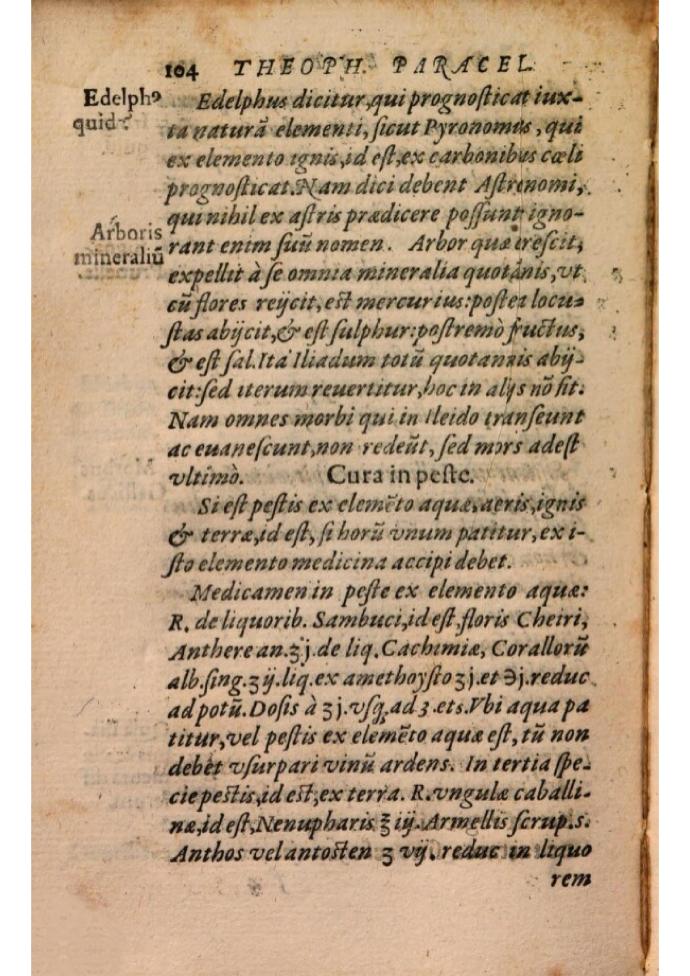 104 THEOPH. PARACEL.
Edelphꝰ
quid?
Edelphus dicitur, qui prognosticat iux-
ta naturã elementi, sicut Pyronomus, qui
ex elemento ignis, id est, ex carbonibus cœli
prognosticat. Nam dici debent Astronomi,
qui nihil ex astris prædicere possunt, igno-
Arboris
mineraliũ
rant enim suũ nomen. Arbor quæ crescit,
expellit à se omnia mineralia quotãnis, vt
cũ flores reijcit, est mercurius: postea locu-
stas abijcit, & est sulphur: postremò fructus,
& est sal. Ita Iliadum totũ quotannis abij-
cit: sed iterum reuertitur, hoc in alijs nõ fit.
Nam omnes morbi qui in Ileido transeunt
ac euanescunt, non redeũt, sed mors adest
vltimò. Cura in peste.
Si est pestis ex elemẽto aquæ, aeris, ignis
& terræ, id est, si horũ vnum patitur, ex i-
sto elemento medicina accipi debet.
Medicamen in peste ex elemento aquæ:
R. de liquorib. Sambuci, id est, floris Cheiri,
Anthere an. ʒj. de liq. Cachimiæ, Corallorũ
alb. sing. ʒ ij. liq. ex amethoysto ʒj. et ℈j. reduc
ad potũ. Dosis à ʒj. vsq; ad 3. et s. Vbi aqua pa
titur, vel pestis ex elemẽto aquæ est, tũ non
debet vsurpari vinũ ardens. In tertia spe-
cie pestis, id est, ex terra. R. vngulæ caballi-
næ, id est, Nenupharis ℥ iij. Armellis scrup. s.
Anthos vel antosten ʒ vij. reduc in liquo
rem